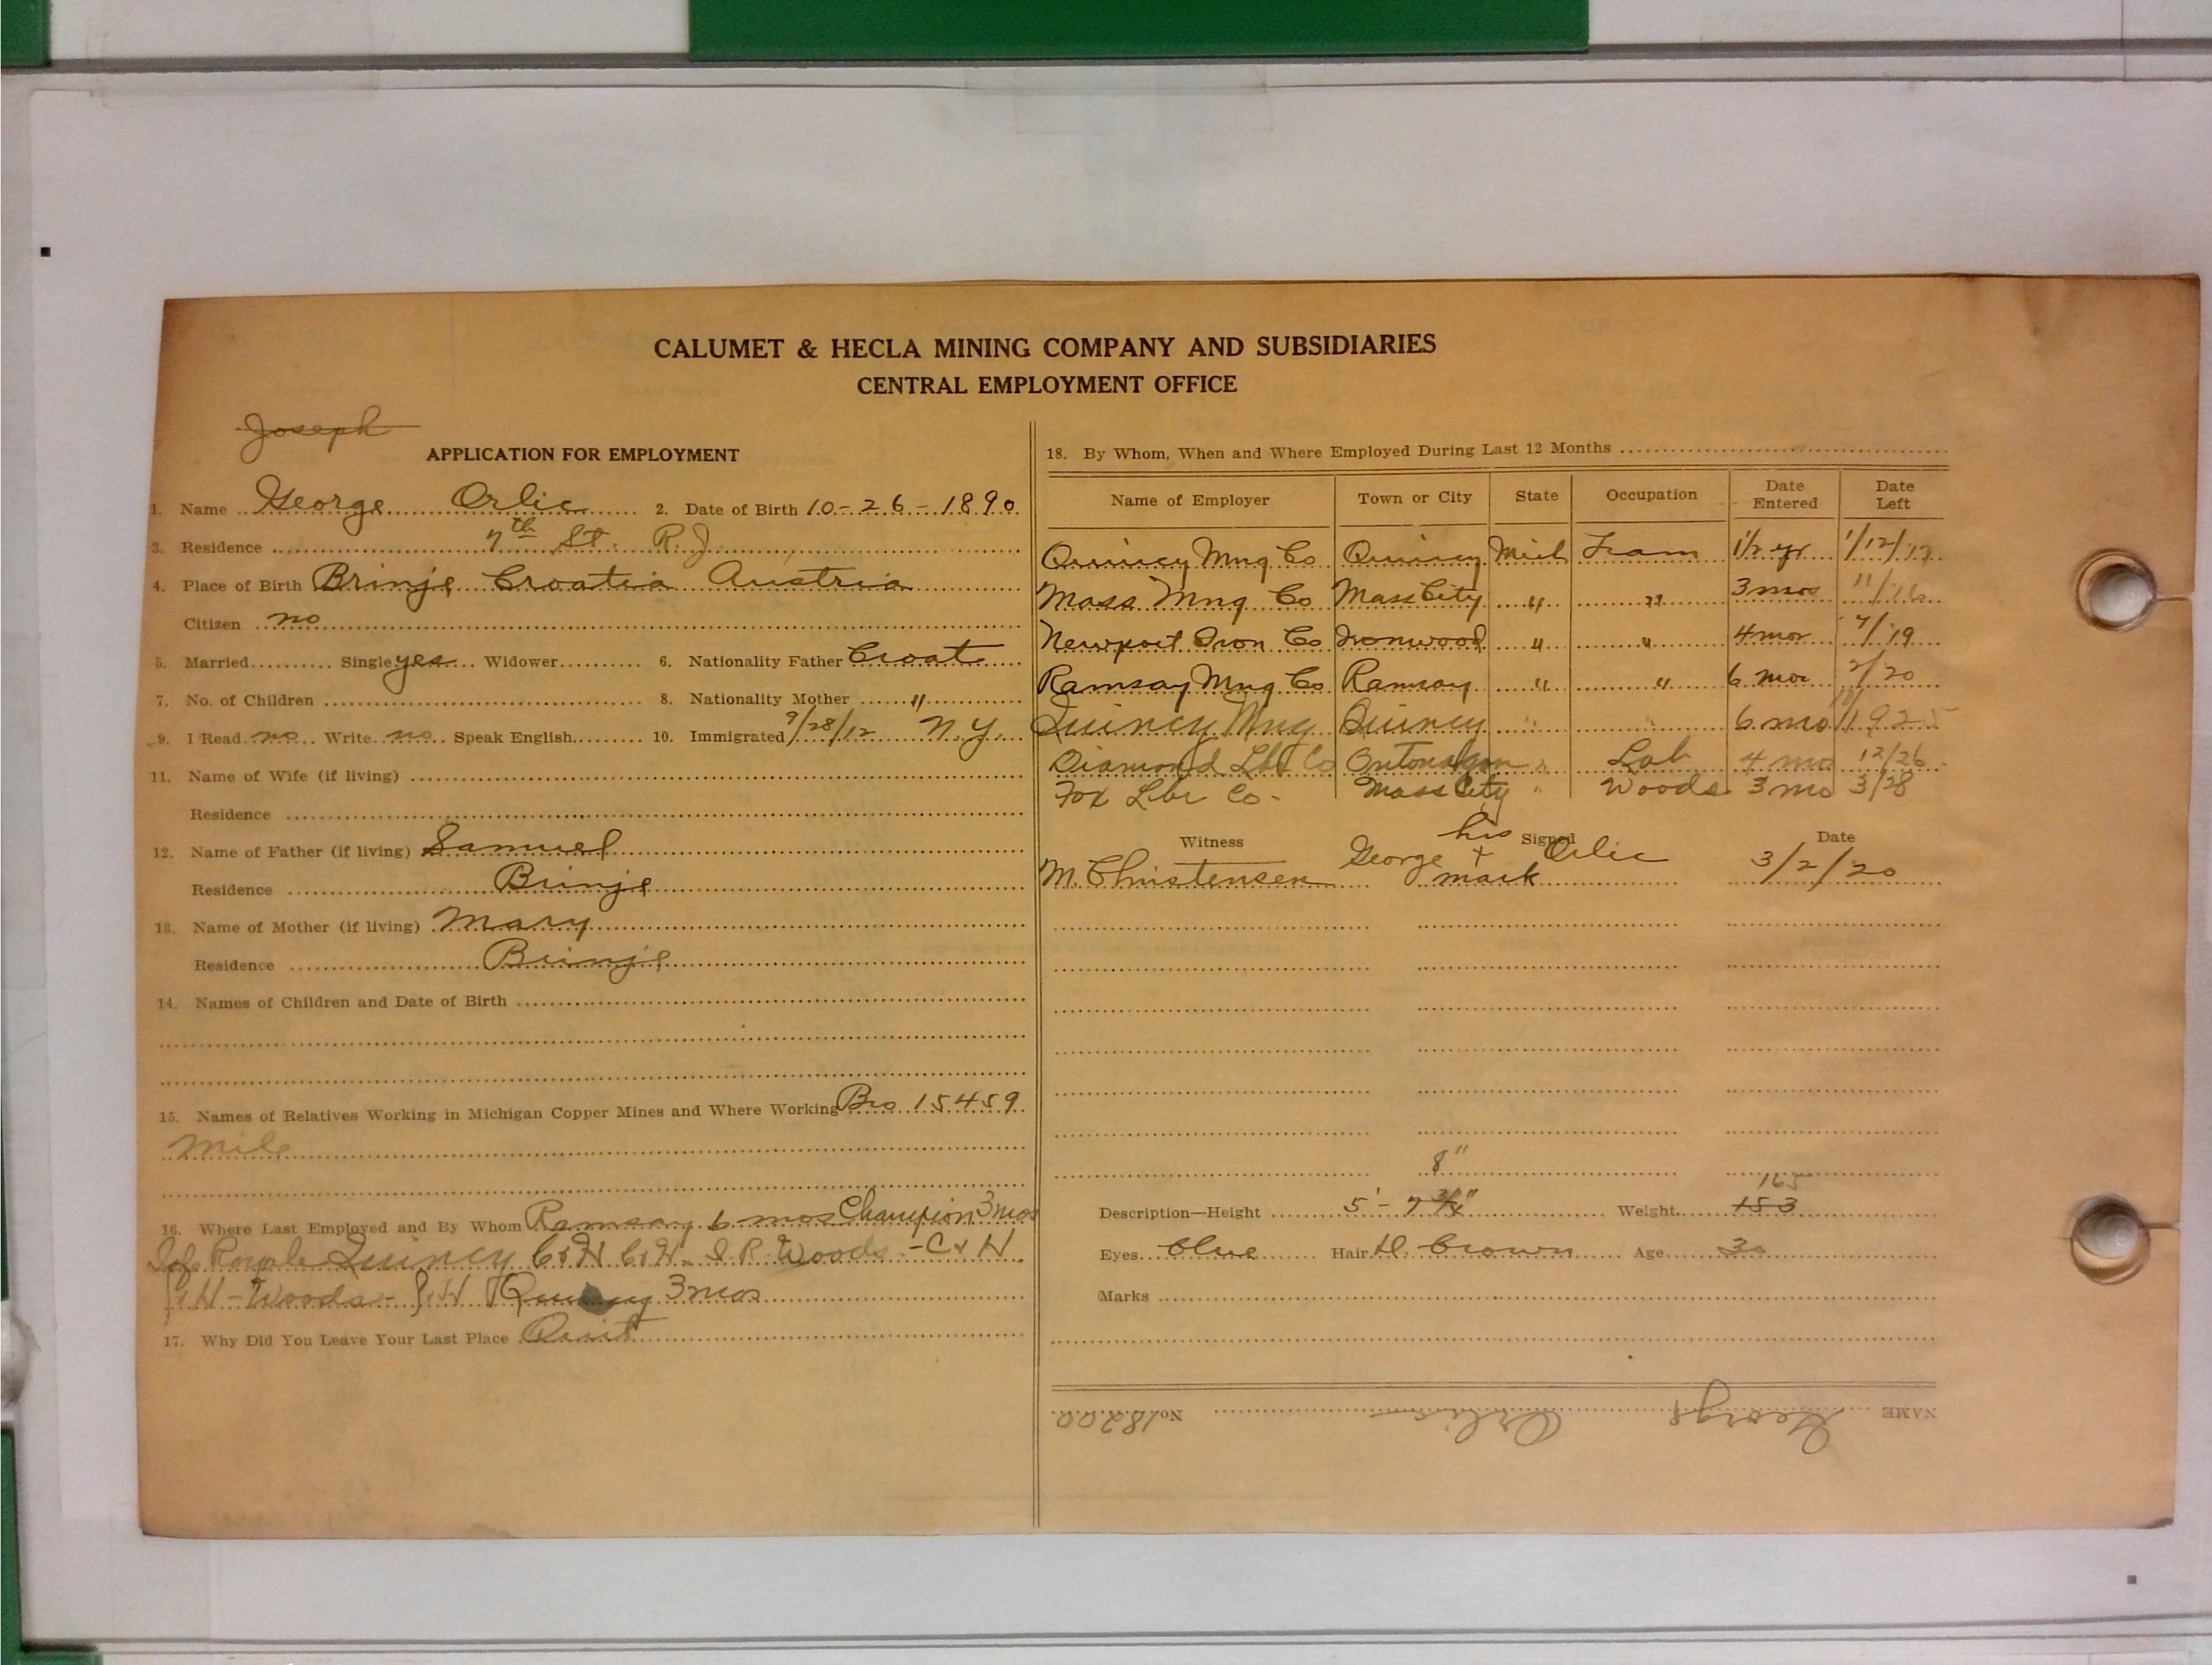 CALUMET & HECLA MINING COMPANY AND SUBSIDIARIES
CENTRAL EMPLOYMENT OFFICE
Joseph
APPLICATION FOR EMPLOYMENT
1. Name George Orlic 2. Date of Birth 10-26-1890
3. Residence 7th St. R.J.
4. Place of Birth Brinje Croatia Austria
Citizen no
5. Married Single yes Widower 6. Nationality Father Croat
7. No. of Children 8. Nationality Mother "
9. I Read no Write no Speak English 10. Immigrated 9/28/12 N.Y.
11. Name of Wife (if living)
Residence
12. Name of Father (if living) Samuel
Residence Brinje
13. Name of Mother (if living) Mary
Residence Brinje
14. Names of Children and Date of Birth
15. Names of Relatives Working in Michigan Copper Mines and Where Working Bro 15459
Mile
16. Where Last Employed and By Whom Ramsay 6 mos Champion 3 mos
Isle Royale Quincy C&H C&H - I.R. Woods - C&H
H - Woods - Quincy 3 mos
17. Why Did You Leave Your Last Place Quit
18. By Whom, When and Where Employed During Last 12 Months
Name of Employer Town or City State Occupation Date Entered Date Left
Quincy Mng Co Quincy Mich Tram 1/2 yr 1/12/17
Mass Mng Co Mass City " " 3 mos 11/16
Newport Iron Co Ironwood " " 4 mos 7/19
Ramsay Mng Co Ramsay " " 6 mos 2/20
Quincy Mng Quincy " " 6 mo
Diamond Lbr Co Ontonagon " Lab 4 mo 12/26
Fox Lbr Co. Mass City " Woods 3 mo 3/28
Witness Signed Date
M. Christensen George his + mark Orlic 3/2/20
8"
Description—Height 5'-7 3/4" Weight 153 165
Eyes blue Hair D. brown Age 30
Marks
NAME George Orlic No. 18200